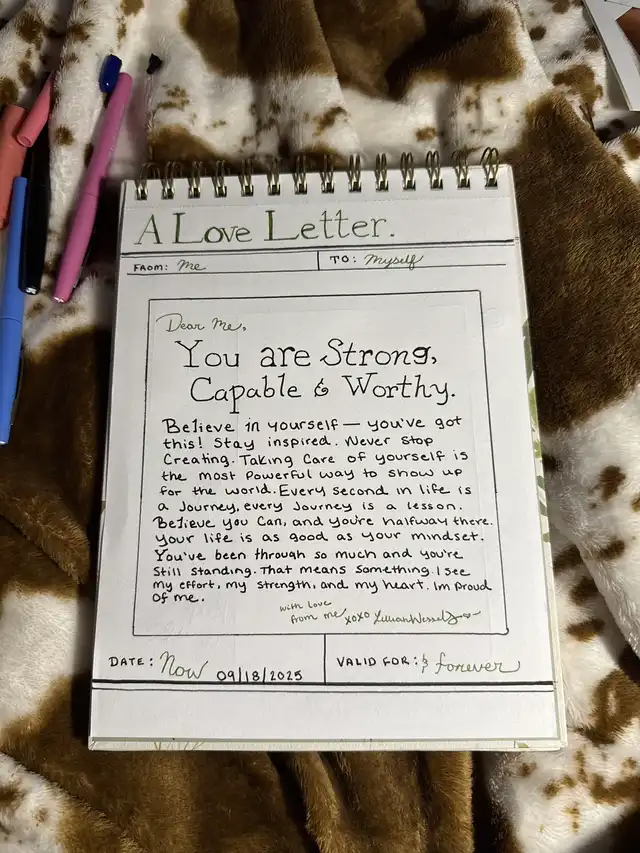 A Love Letter.
FROM: Me TO: Myself
Dear Me,
You are Strong,
Capable & Worthy.
Believe in yourself — you've got
this! Stay inspired. Never Stop
Creating. Taking Care of yourself is
the most Powerful way to show up
for the world. Every second in life is
a Journey, every Journey is a lesson.
Believe you Can, and you're halfway there.
your life is as good as your mindset.
You've been through so much and you're
Still Standing. That means something. I see
my effort, my strength, and my heart. Im Proud
Of me.
with love
from me xoxo Lillian Wessel
DATE: Now 09/18/2025 VALID FOR: & forever